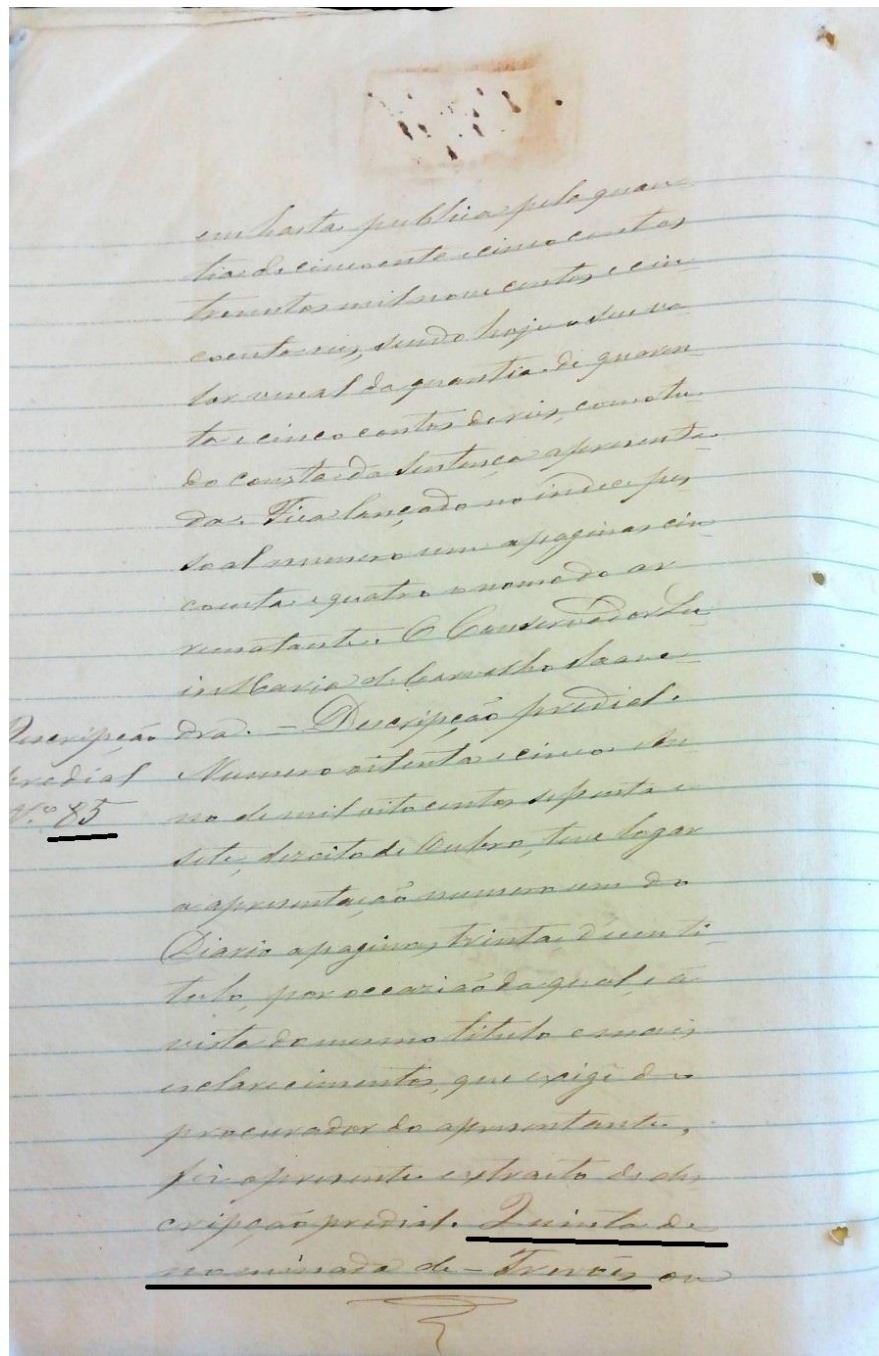 em hasta publica pela quan
tia de cincoenta e cinco contos
trezentos mil nove centos e cin
coenta reis, sendo hoje o seu va
lor venal da quantia de quaren
ta e cinco contos de reis, como tu
do consta da sentença apresenta
da. Fica lançado no indice pes
soal numero um a paginas cin
coenta e quatro o nome do ar
rematante. O Conservador Lu
iz Maria de Carvalho Saave
dra. - Descripção predial.
Descripção
predial
N.º 85
Numero oitenta e cinco. An
no de mil oito centos setenta e
sete, dezoito de Outubro, teve logar
a apresentação numero um do
Diario a paginas trinta, d'um ti
tulo, por occazião da qual, e á
vista do mesmo titulo e mais
esclarecimentos, que exigi do
procurador do apresentante,
fiz o presente extracto de des
cripção predial. Quinta de
nominada de - Trevões ou